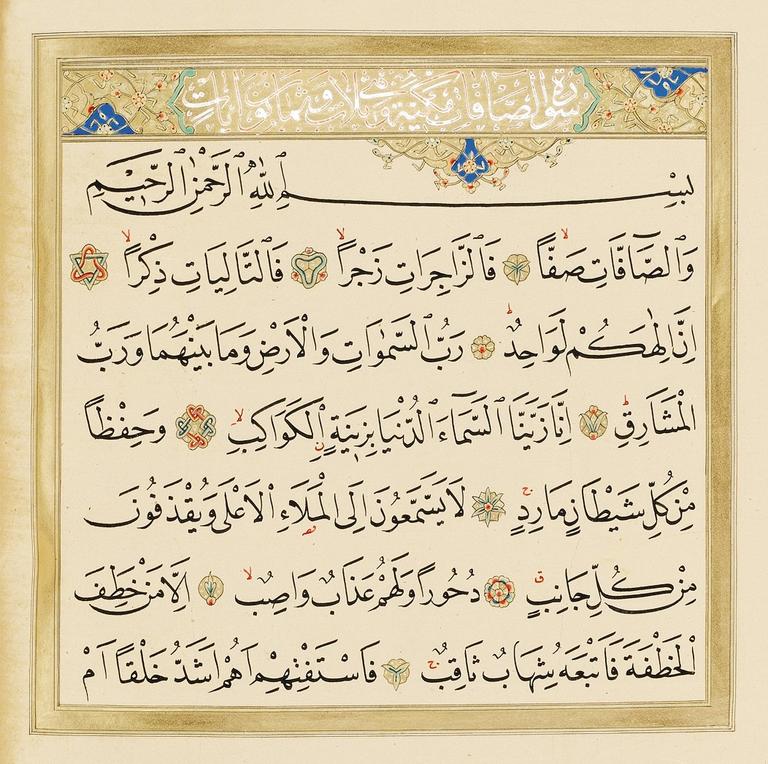 سُورَةُ الصَّافَّاتِ مَكِّيَّة
بِسْمِ اللّٰهِ الرَّحْمٰنِ الرَّحِيمِ
وَالصَّافَّاتِ صَفًّا ۙ فَالزَّاجِرَاتِ زَجْرًا ۙ فَالتَّالِيَاتِ ذِكْرًا ۙ
اِنَّ اِلٰهَكُمْ لَوَاحِدٌ ؕ رَبُّ السَّمٰوَاتِ وَالْاَرْضِ وَمَا بَيْنَهُمَا وَرَبُّ
الْمَشَارِقِ ؕ اِنَّا زَيَّنَّا السَّمَآءَ الدُّنْيَا بِزِينَةٍ الْكَوَاكِبِ ۙ وَحِفْظًا
مِنْ كُلِّ شَيْطَانٍ مَارِدٍ ۚ لَا يَسَّمَّعُونَ اِلَى الْمَلَاءِ الْاَعْلٰى وَيُقْذَفُونَ
مِنْ كُلِّ جَانِبٍ ۗ دُحُورًا وَلَهُمْ عَذَابٌ وَاصِبٌ ۙ اِلَّا مَنْ خَطِفَ
الْخَطْفَةَ فَاَتْبَعَهُ شِهَابٌ ثَاقِبٌ ۚ فَاسْتَفْتِهِمْ اَهُمْ اَشَدُّ خَلْقًا اَمْ